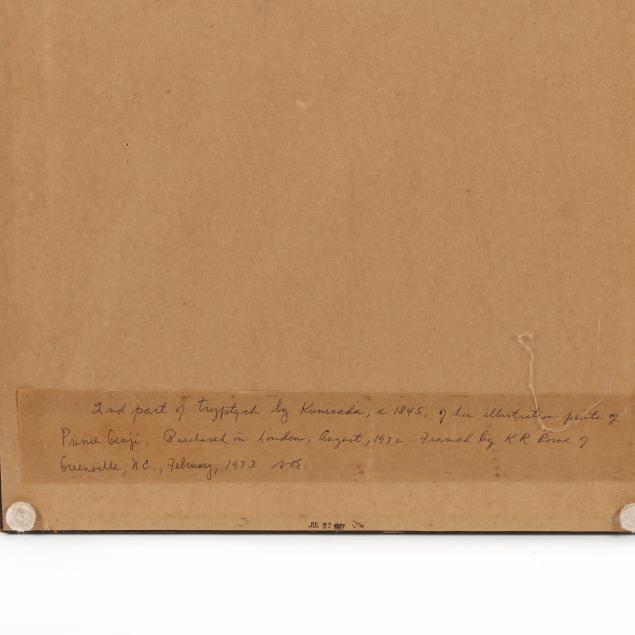 2nd part of tryptych by Kunisada, c. 1845, of his illustration prints of
Prince Genji. Purchased in London, August, 1972. Framed by K R of
Greenville, N.C., February, 1973.
JUL 02 1987